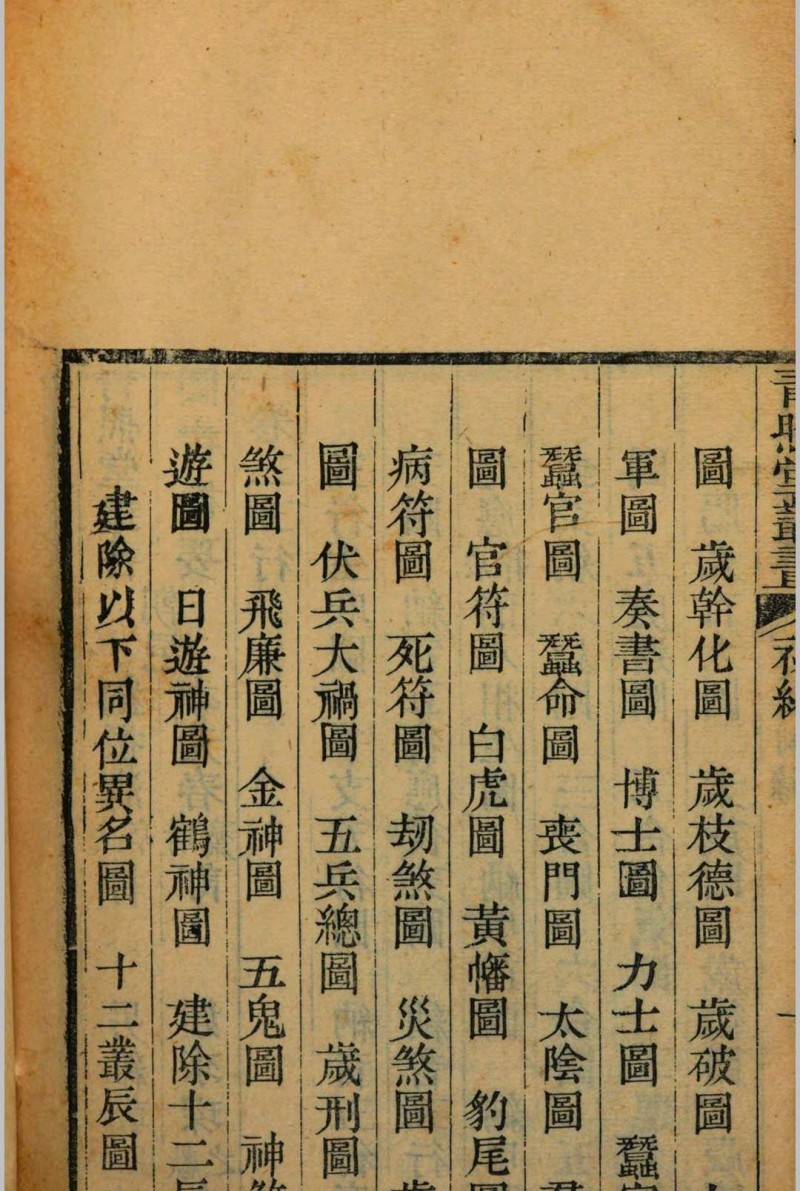 圖　歲幹化圖　歲枝德圖　歲破圖
軍圖　奏書圖　博士圖　力士圖　蠶
蠶官圖　蠶命圖　喪門圖　太陰圖
圖　官符圖　白虎圖　黃幡圖　豹尾
病符圖　死符圖　劫煞圖　災煞圖
圖　伏兵大禍圖　五兵總圖　歲刑圖
煞圖　飛廉圖　金神圖　五鬼圖　神
遊圖　日遊神圖　鶴神圖　建除十二
建除以下同位異名圖　十二叢辰圖